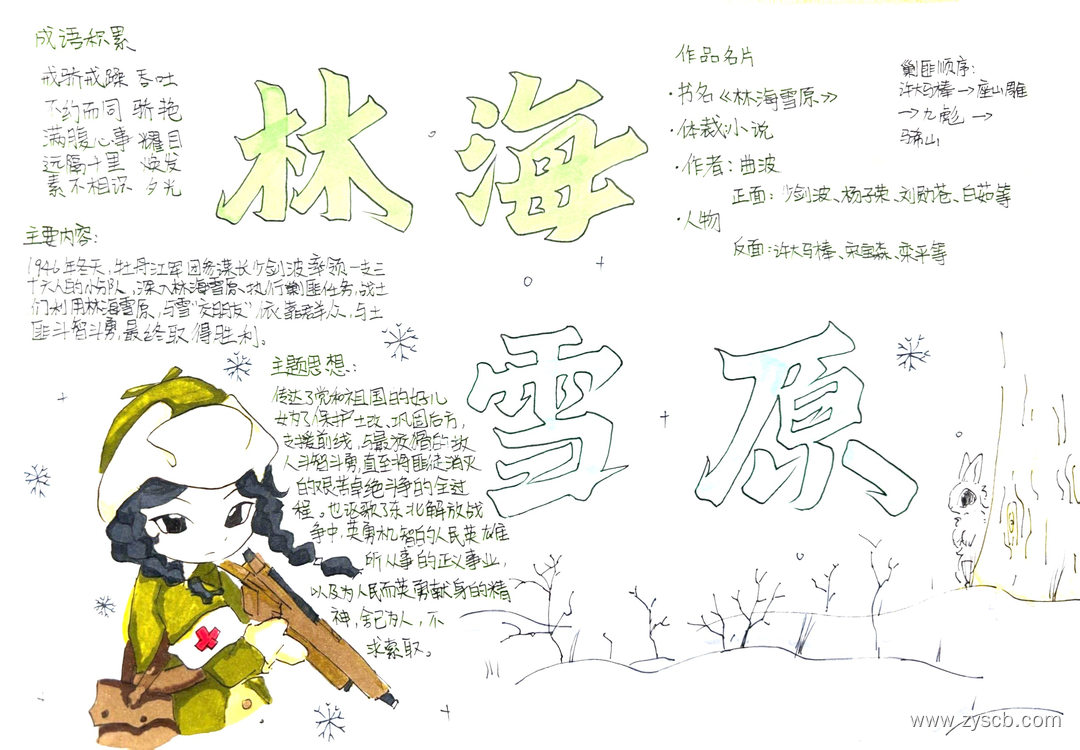 成语积累
戒骄戒躁 吞吐
不约而同 骄艳
满腹心事 耀目
远隔千里 焕发
素不相识 夕光
林海
雪原
作品名片
·书名《林海雪原》
·体裁:小说
·作者:曲波
·人物
正面:少剑波、杨子荣、刘勋苍、白茹等
反面:许大马棒、宋宝森、栾平等
剿匪顺序:
许大马棒→座山雕
→九彪→
马希山
主要内容:
1946年冬天,牡丹江军团参谋长少剑波率领一支三
十六人的小分队,深入林海雪原执行剿匪任务,战士
们利用林海雪原,与雪"交朋友"依靠群众,与土
匪斗智斗勇,最终取得胜利。
主题思想:
传达了党和祖国的好儿
女为了保护土改、巩固后方,
支援前线,与最狡猾的敌
人斗智斗勇,直至将匪徒消灭
的艰苦卓绝斗争的全过
程。也讴歌了东北解放战
争中,英勇机智的人民英雄
所从事的正义事业,
以及为人民而英勇献身的精
神,舍己为人,不
求索取。
www.zyscb.com